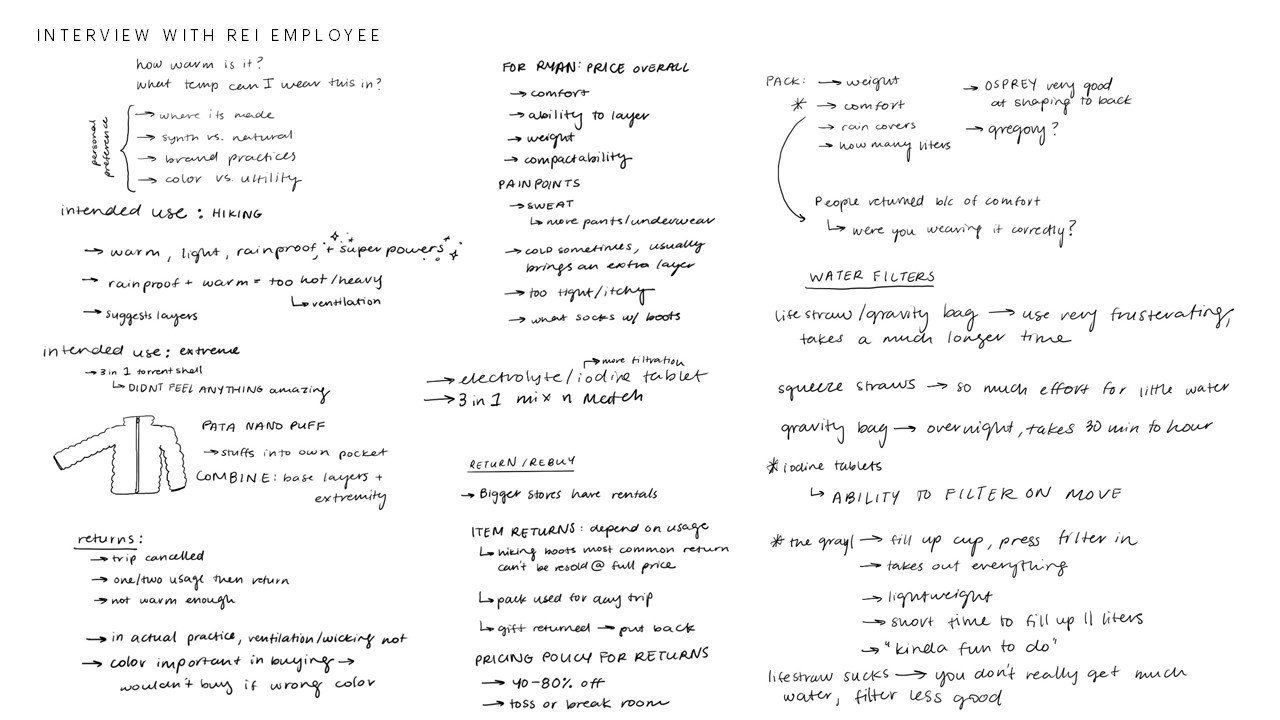 INTERVIEW WITH REI EMPLOYEE
how warm is it?
what temp can I wear this in?
personal preference
→ where its made
→ synth vs. natural
→ brand practices
→ color vs. ultility
intended use: HIKING
→ warm, light, rainproof, + super powers
→ rainproof + warm = too hot/heavy
↳ ventilation
→ suggests layers
intended use: extreme
→ 3 in 1 torrentshell
↳ DIDNT FEEL ANYTHING amazing
PATA NANO PUFF
→ stuffs into own pocket
COMBINE: base layers +
extremity
returns:
→ trip cancelled
→ one/two usage then return
→ not warm enough
→ in actual practice, ventilation/wicking not
→ color important in buying →
wouldn't buy if wrong color
FOR RYAN: PRICE OVERALL
→ comfort
→ ability to layer
→ weight
→ compactability
PAINPOINTS
→ SWEAT
↳ more pants/underwear
→ cold sometimes, usually
brings an extra layer
→ too tight/itchy
→ what socks w/ boots
→ more filtration
→ electrolyte/iodine tablet
→ 3 in 1 mix n match
RETURN/REBUY
→ Bigger stores have rentals
ITEM RETURNS: depend on usage
↳ hiking boots most common return
can't be resold @ full price
↳ pack used for day trip
↳ gift returned → put back
PRICING POLICY FOR RETURNS
→ 40-80% off
→ toss or break room
PACK: → weight
* → comfort
→ rain covers
→ how many liters
→ OSPREY very good
at shaping to back
→ gregory?
People returned b/c of comfort
↳ were you wearing it correctly?
WATER FILTERS
life straw/gravity bag → use very frusterating,
takes a much longer time
squeeze straws → so much effort for little water
gravity bag → overnight, takes 30 min to hour
* iodine tablets
↳ ABILITY TO FILTER ON MOVE
* the grayl → fill up cup, press filter in
→ takes out everything
→ lightweight
→ short time to fill up 11 liters
→ "kinda fun to do"
lifestraw sucks → you don't really get much
water, filter less good